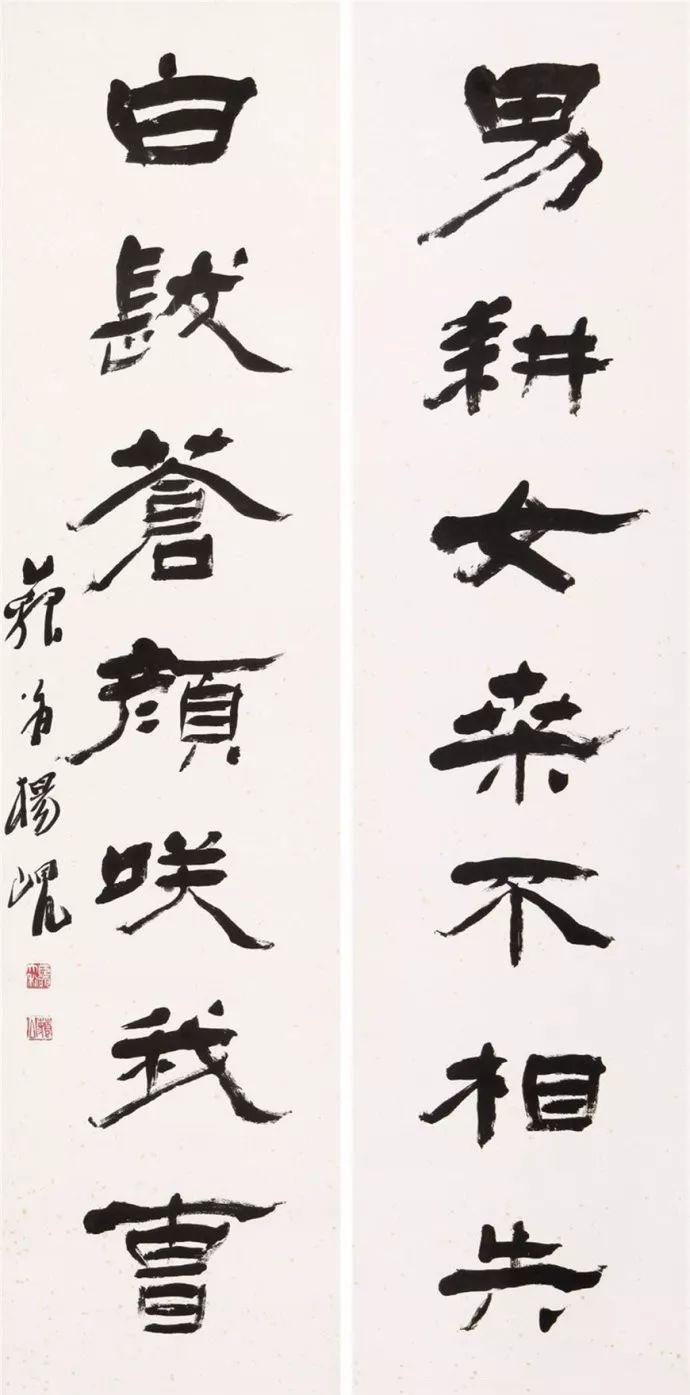 男耕女桒不相失
白髮蒼顔咲我曹
藐翁楊峴